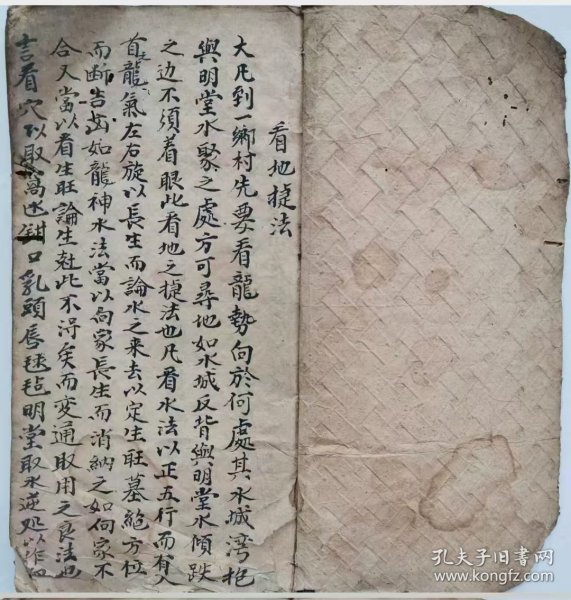 看地捷法
大凡到一鄉村先要看龍勢向於何處其水城湾抱
與明堂水聚之處方可尋地如水城反背與明堂水傾跌
之边不須着眼此看地之捷法也凡看水法以正五行而有入
首龍氣左右旋以長生而論水之来去以定生旺墓絶方位
而断吉凶如龍神水法當以向家長生而消納之如向家不
合又當以看生旺論生尅此不淂矣而变通取用之良法也
言看穴以取窩 鉗口乳頭唇毬毡明堂取水逆处
孔夫子旧书网
www.kongfz.com